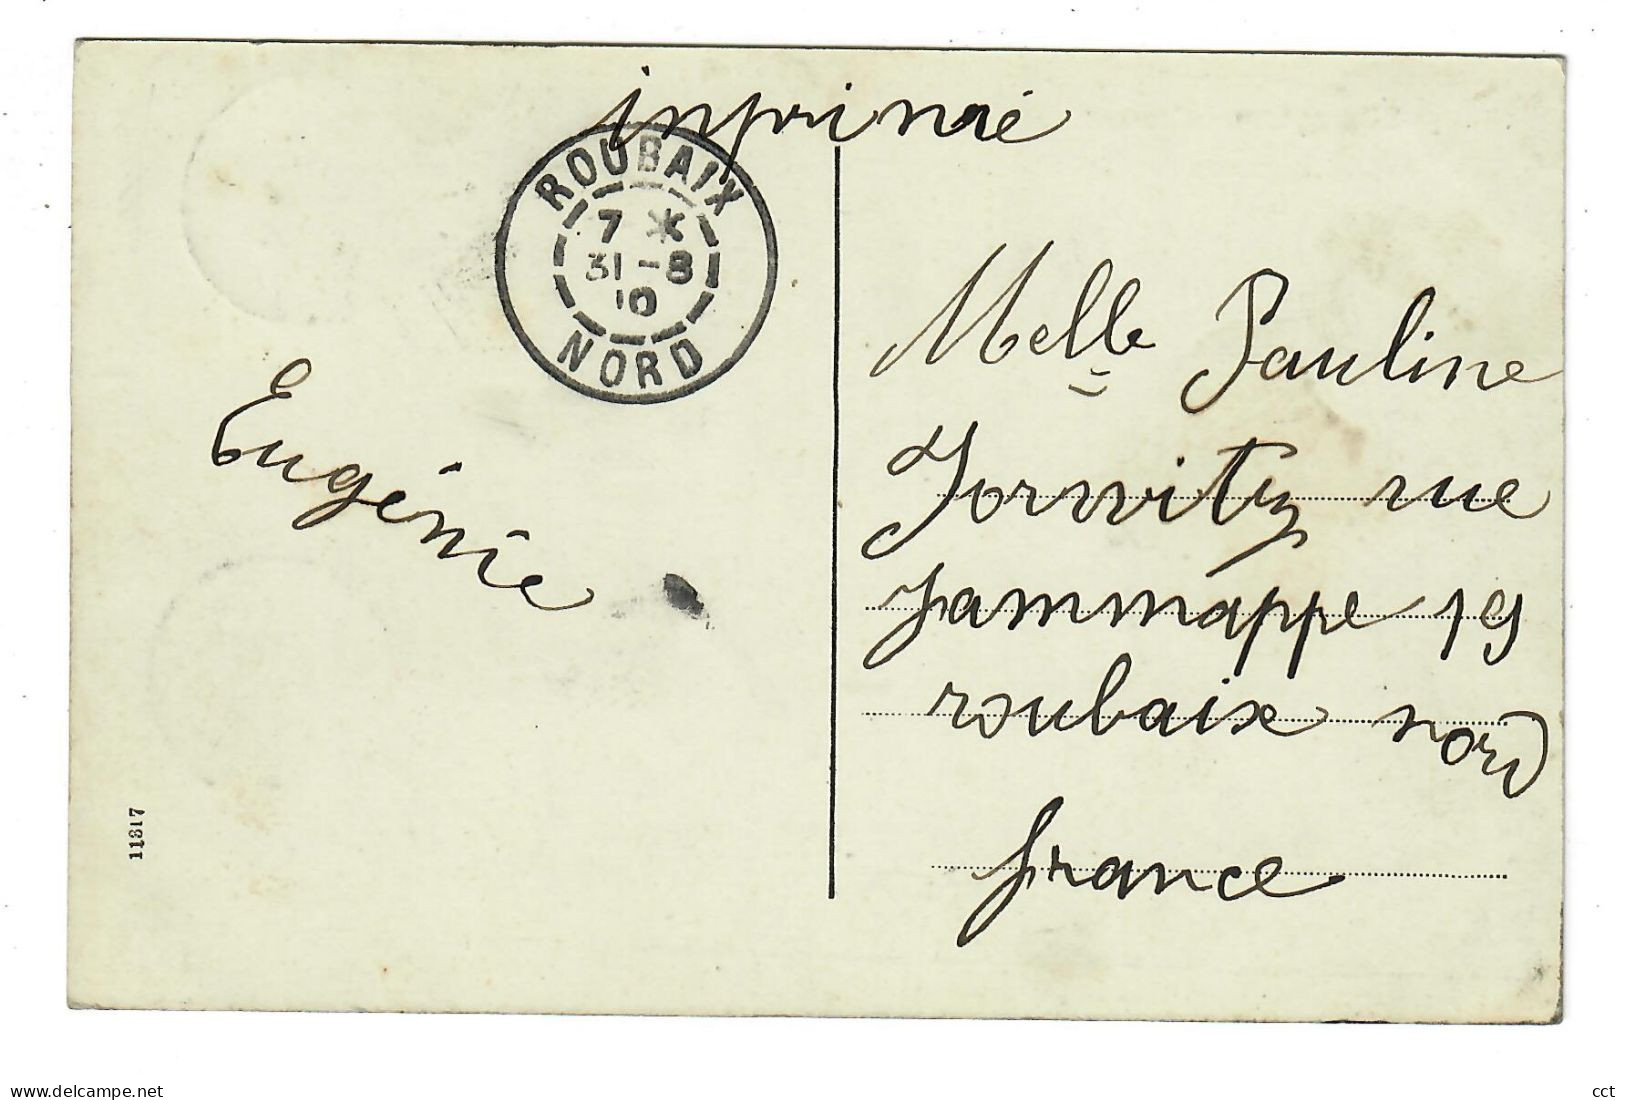 inprimé
ROUBAIX
7 *
31-8
10
NORD
Eugénie
Melle Pauline
Jorwitz rue
Jammappe 19
roubaix nord
france
11317
www.delcampe.net
cct